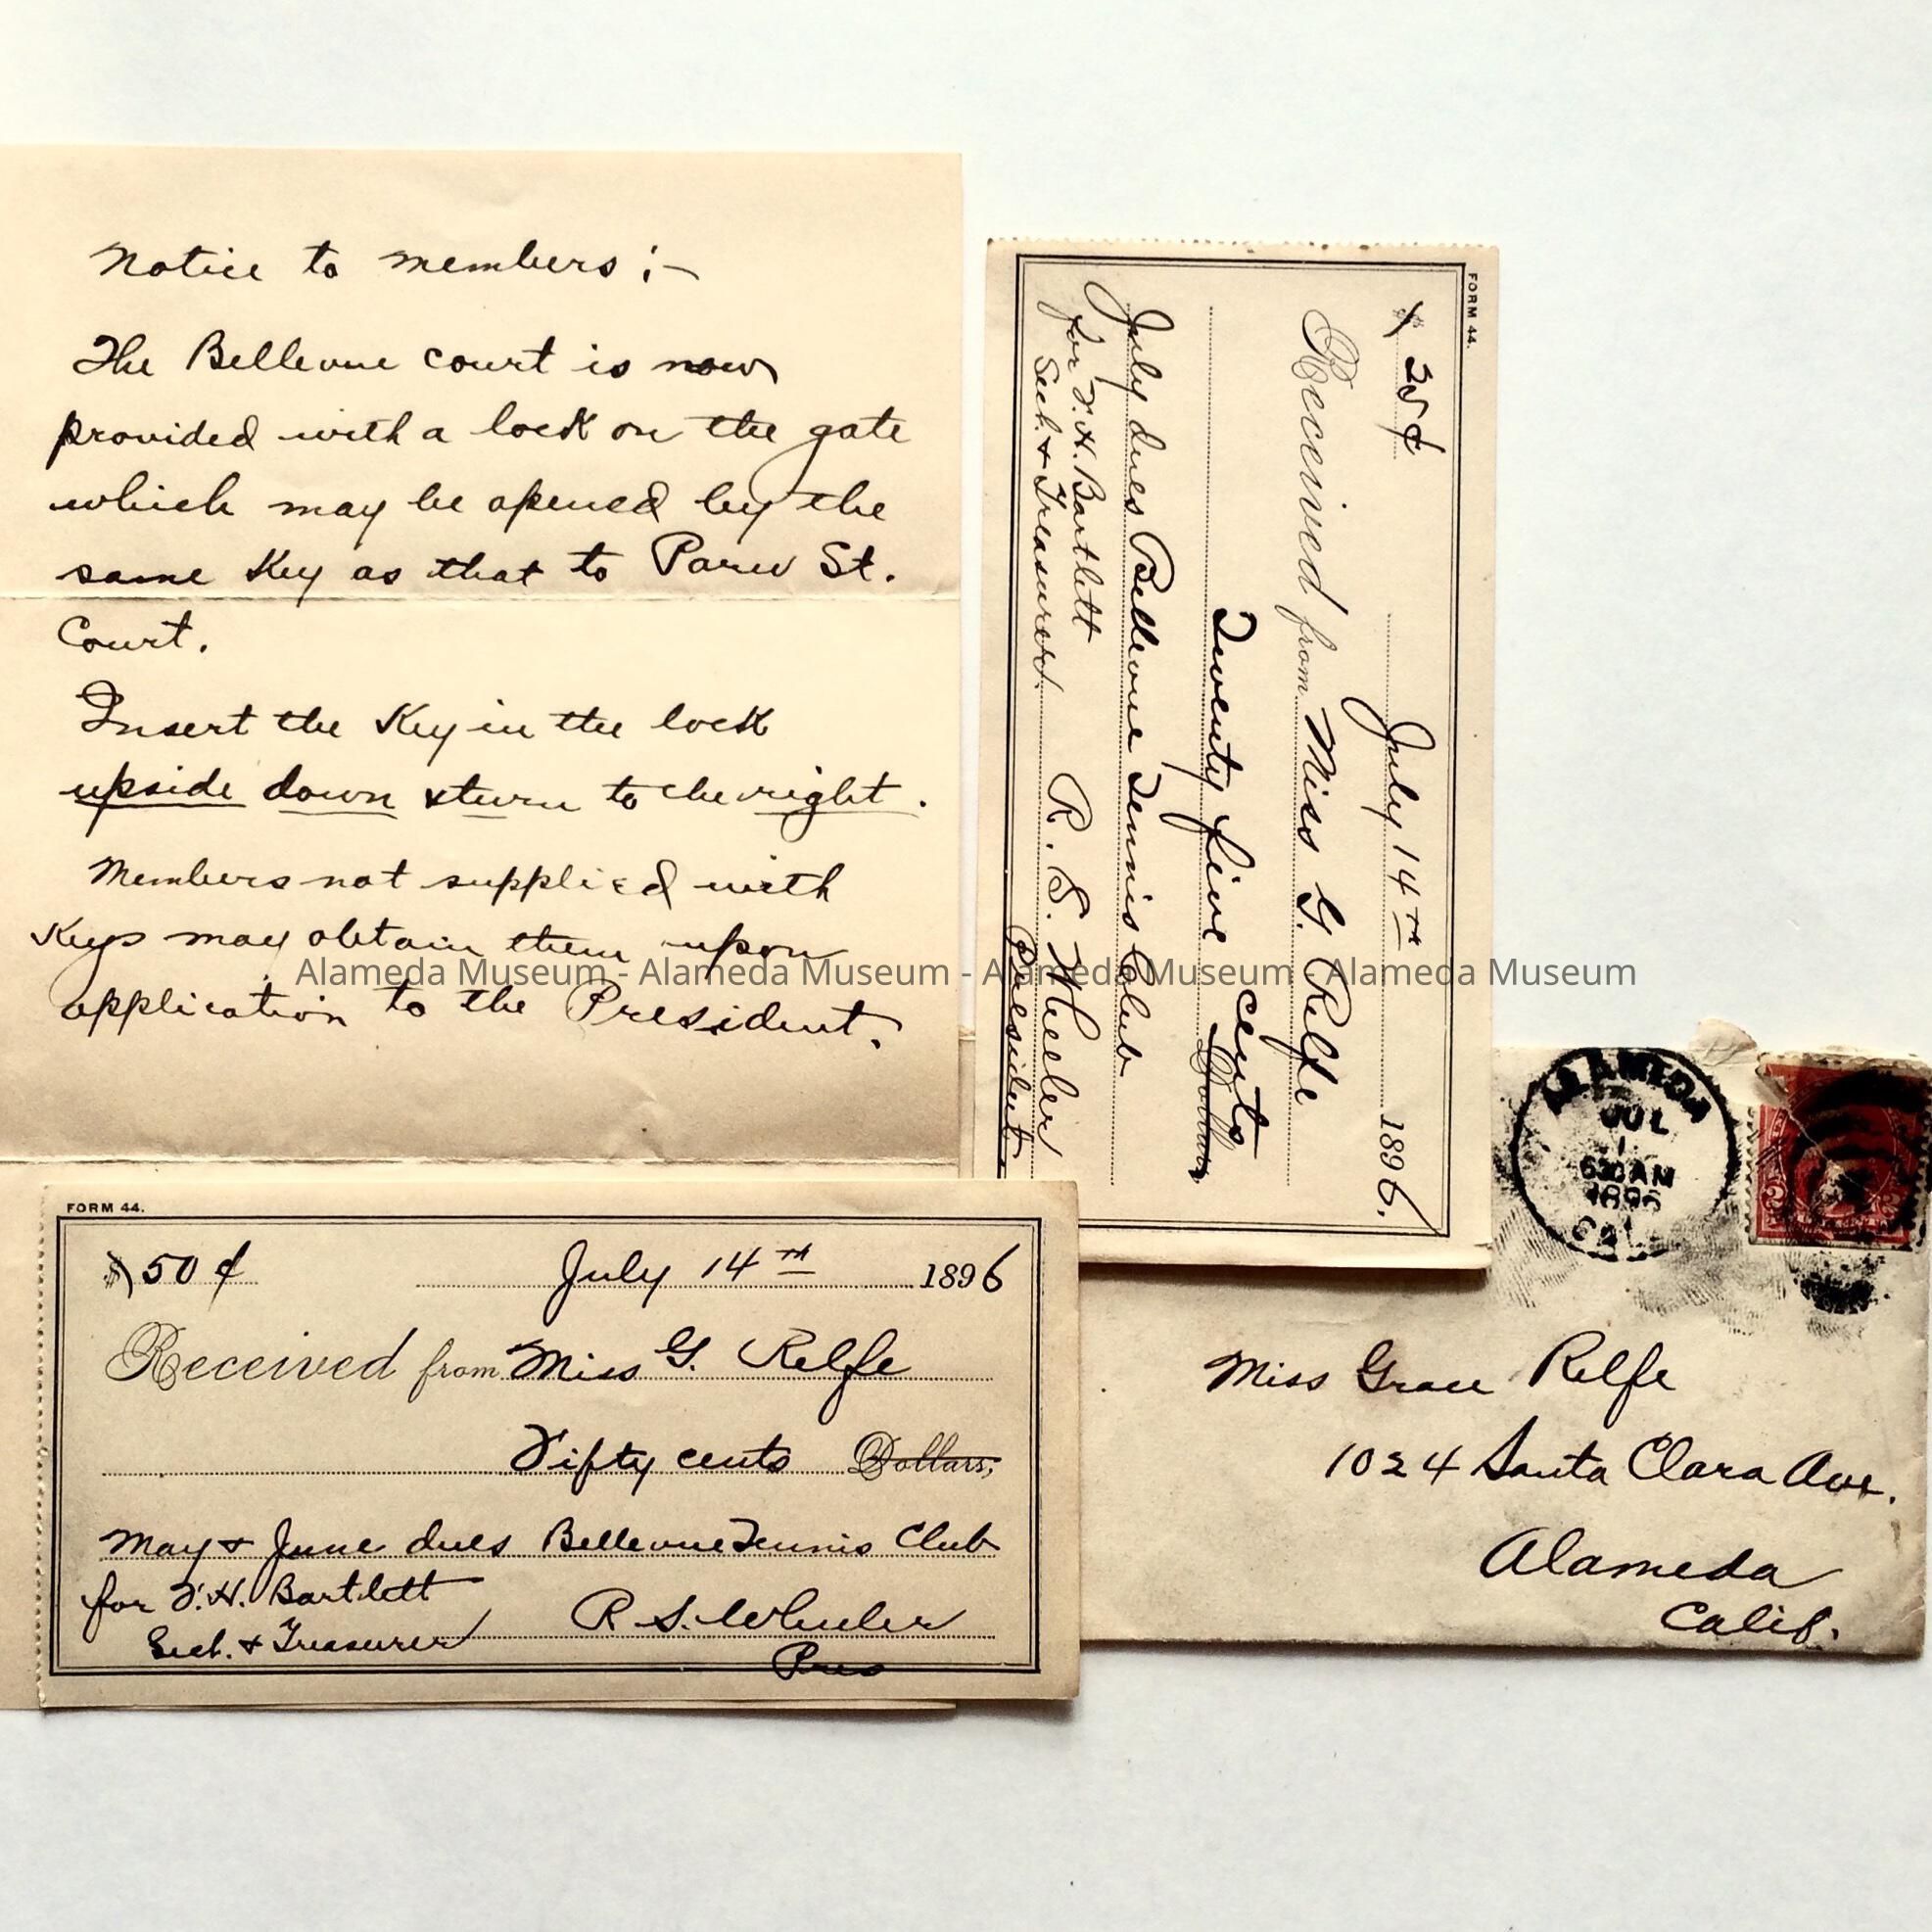 Notice to members :-
The Bellevue court is now
provided with a lock on the gate
which may be opened by the
same Key as that to Paru St.
Court.
Insert the Key in the lock
upside down & turn to the right.
Members not supplied with
Keys may obtain them upon
application to the President.
FORM 44.
$ 25¢
July 14th 1896.
Received from Miss G. Relfe
Twenty five cents
Dollars
July dues Bellevue Tennis Club
for F. H. Bartlett
Sect. & Treasurer.
R. S. Wheeler
President
FORM 44.
$ 50 ¢ July 14th 1896
Received from Miss G. Relfe
Fifty cents Dollars,
May & June dues Bellevue Tennis Club
for F. H. Bartlett
Sect. & Treasurer
R. S. Wheeler
Pres
ALAMEDA
JUL
630AM
1896
CAL
2 2
Miss Grace Relfe
1024 Santa Clara Ave.
Alameda
Calif.
Alameda Museum - Alameda Museum - Alameda Museum - Alameda Museum